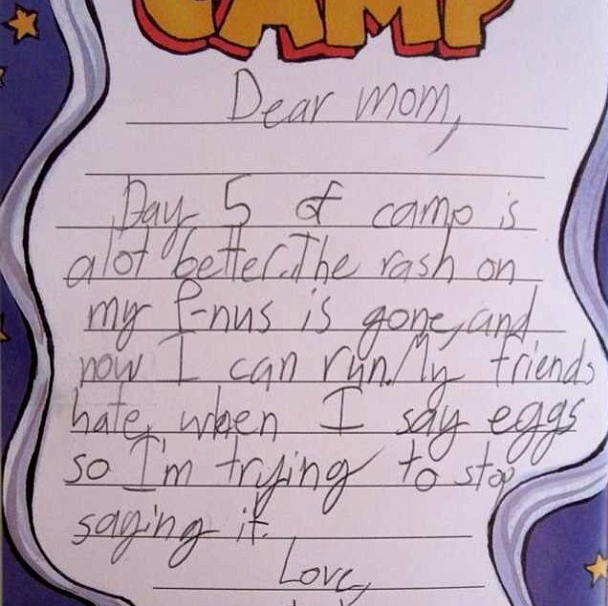 CAMP
Dear mom,
Day 5 of camp is
alot better. The rash on
my P-nus is gone, and
now I can run. My friends
hate when I say eggs
so I'm trying to stop
saying it.
Love,